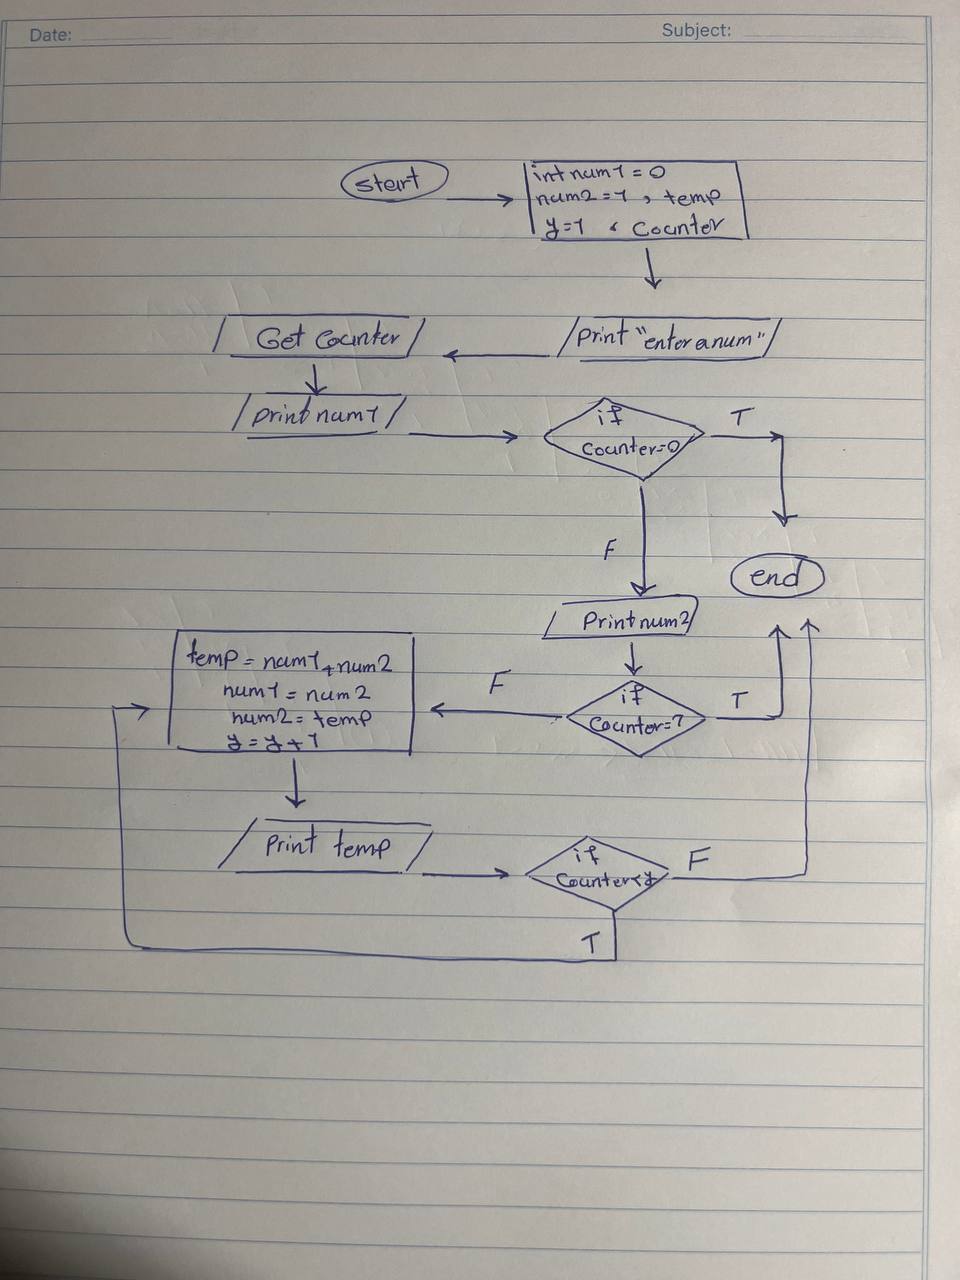 Date:
Subject:
start
int num1 = 0
num2 = 1, temp
y=1, Counter
print "enter a num"
Get Counter
print num1
if
Counter=0
T
F
end
Print num2
if
Counter=1
T
F
temp = num1 + num2
num1 = num2
num2 = temp
y = y + 1
Print temp
if
Counter<y
F
T